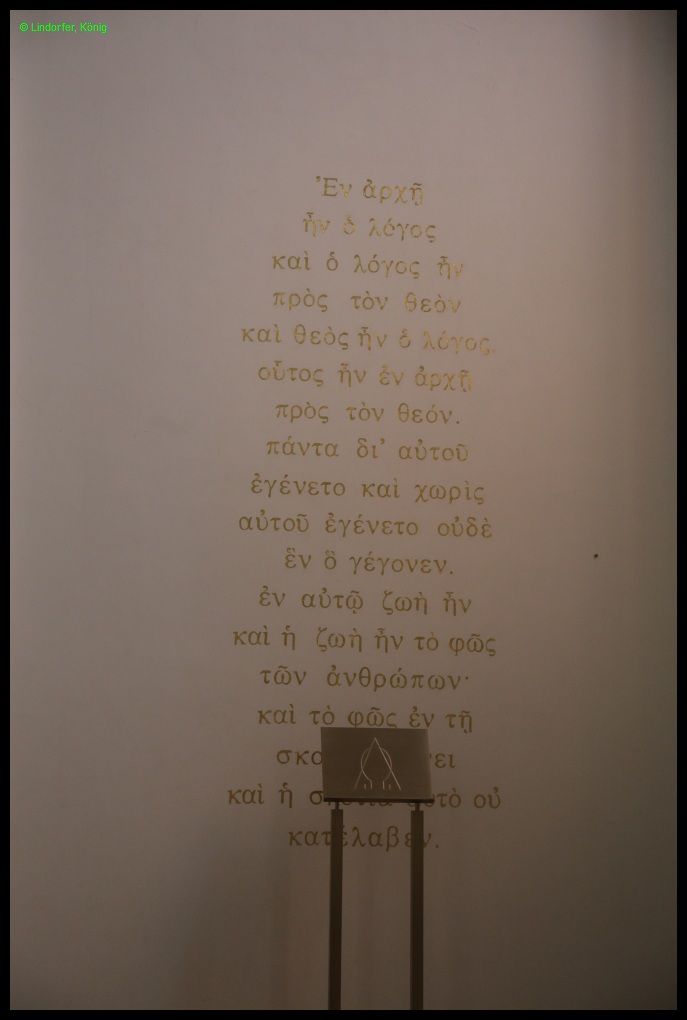 © Lindorfer, König
Ἐν ἀρχῇ
ἦν ὁ λόγος
καὶ ὁ λόγος ἦν
πρὸς τὸν θεὸν
καὶ θεὸς ἦν ὁ λόγος.
οὗτος ἦν ἐν ἀρχῇ
πρὸς τὸν θεόν.
πάντα δι' αὐτοῦ
ἐγένετο καὶ χωρὶς
αὐτοῦ ἐγένετο οὐδὲ
ἓν ὃ γέγονεν.
ἐν αὐτῷ ζωὴ ἦν
καὶ ἡ ζωὴ ἦν τὸ φῶς
τῶν ἀνθρώπων·
καὶ τὸ φῶς ἐν τῇ
καὶ ἡ σκοτία αὐτὸ οὐ
κατέλαβεν.